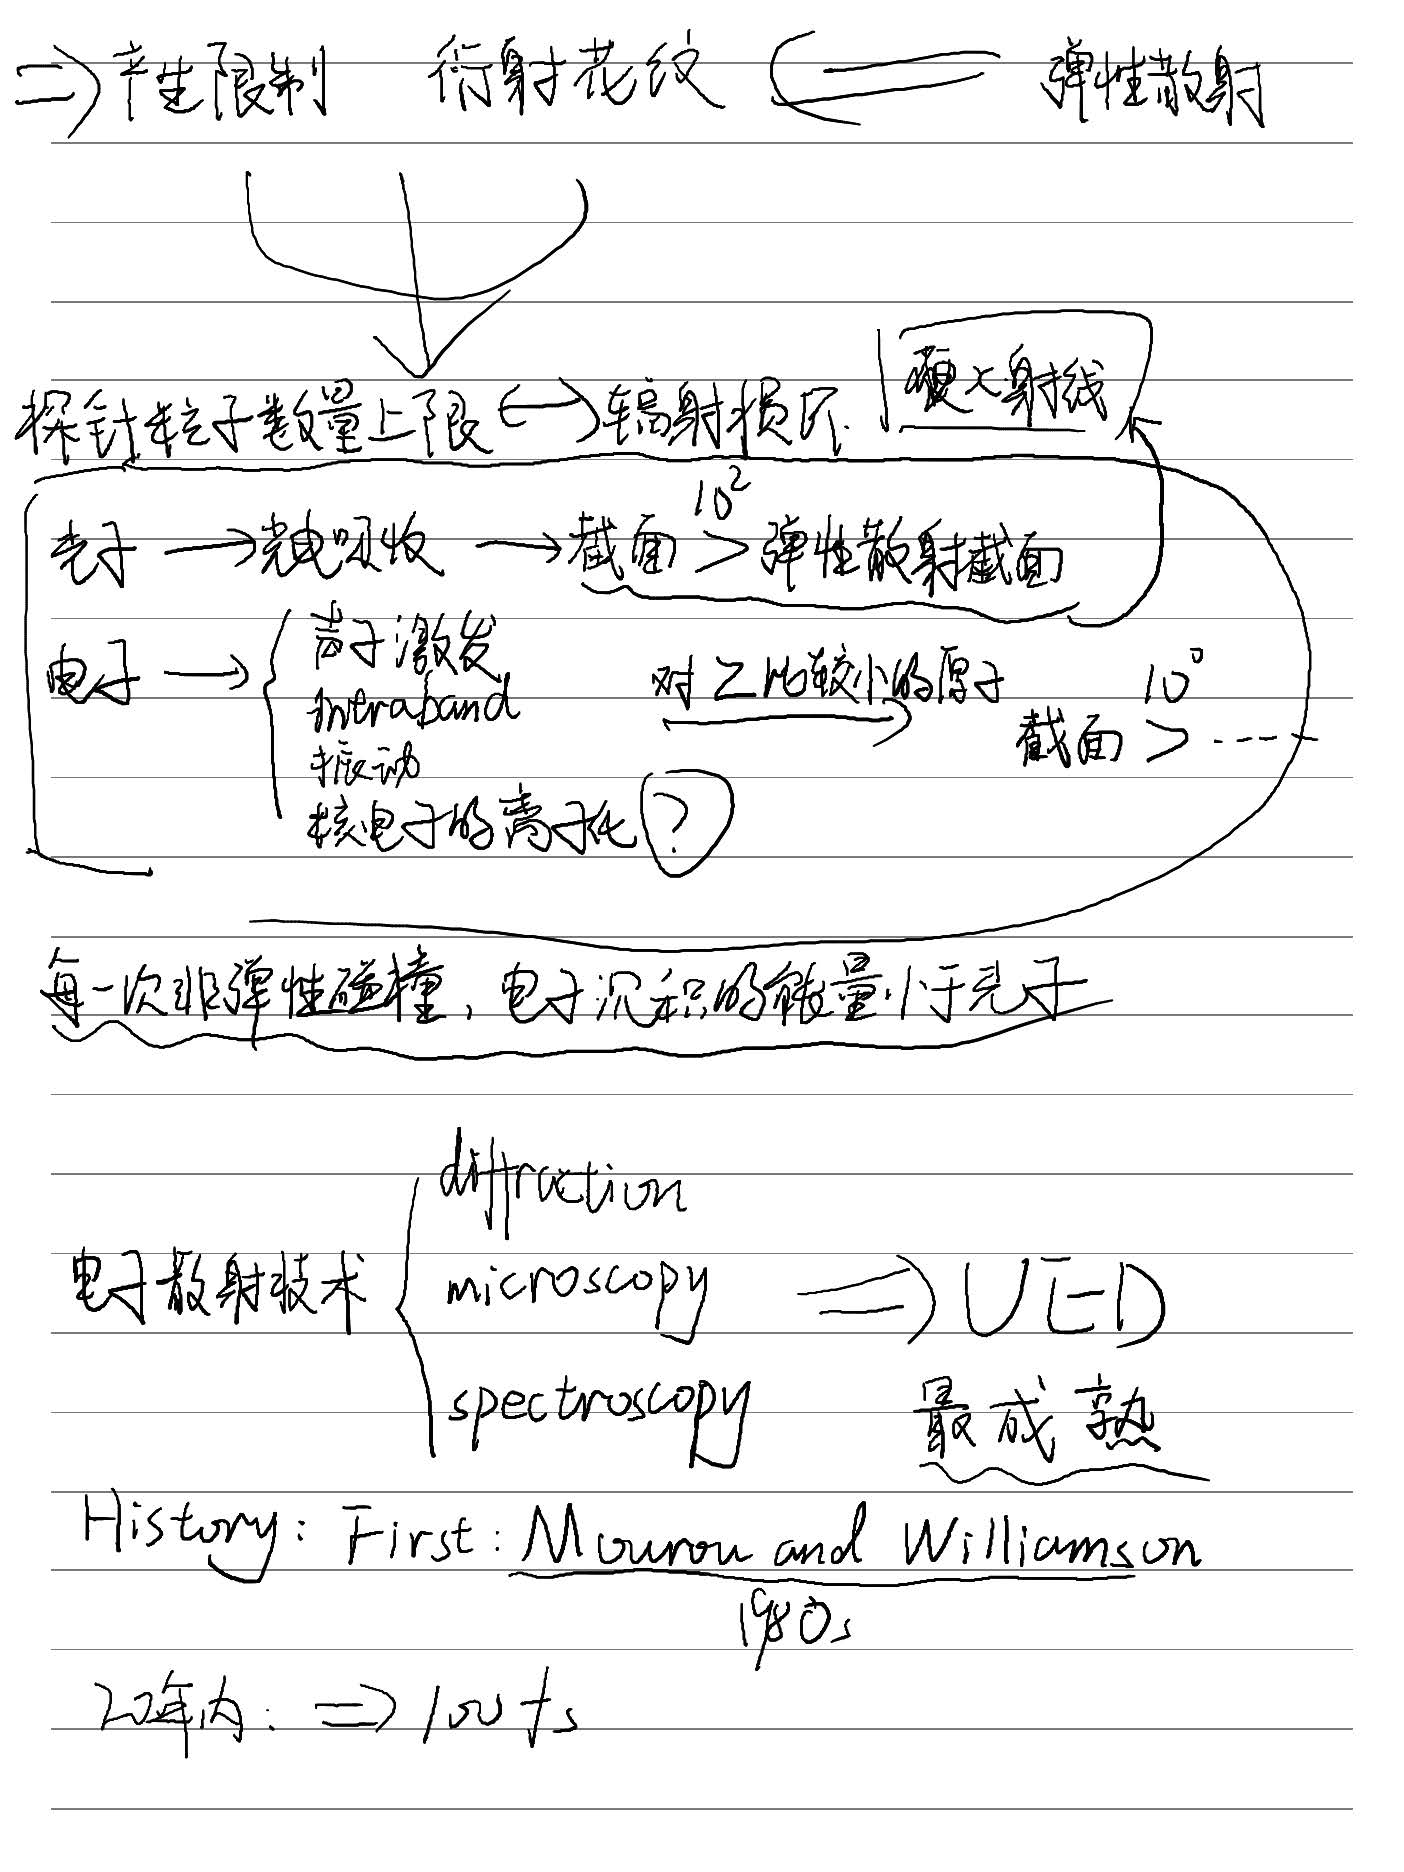 ⇒ 产生限制 衍射花纹 ⇐ 弹性散射
探针粒子数量上限 ↔ 辐射损坏. 硬X射线
光子 → 光电吸收 → 截面 10² > 弹性散射截面
电子 → 声子激发
intraband
振动
核电子的离子化 ?
对Z比较小的原子 → 截面 10⁰ > ----
每一次非弹性碰撞, 电子沉积的能量小于光子
电子散射技术
diffraction
microscopy ⇒ UED
spectroscopy 最成熟
History: First: Mourou and Williamson
1980s
20年内: ⇒ 100 fs